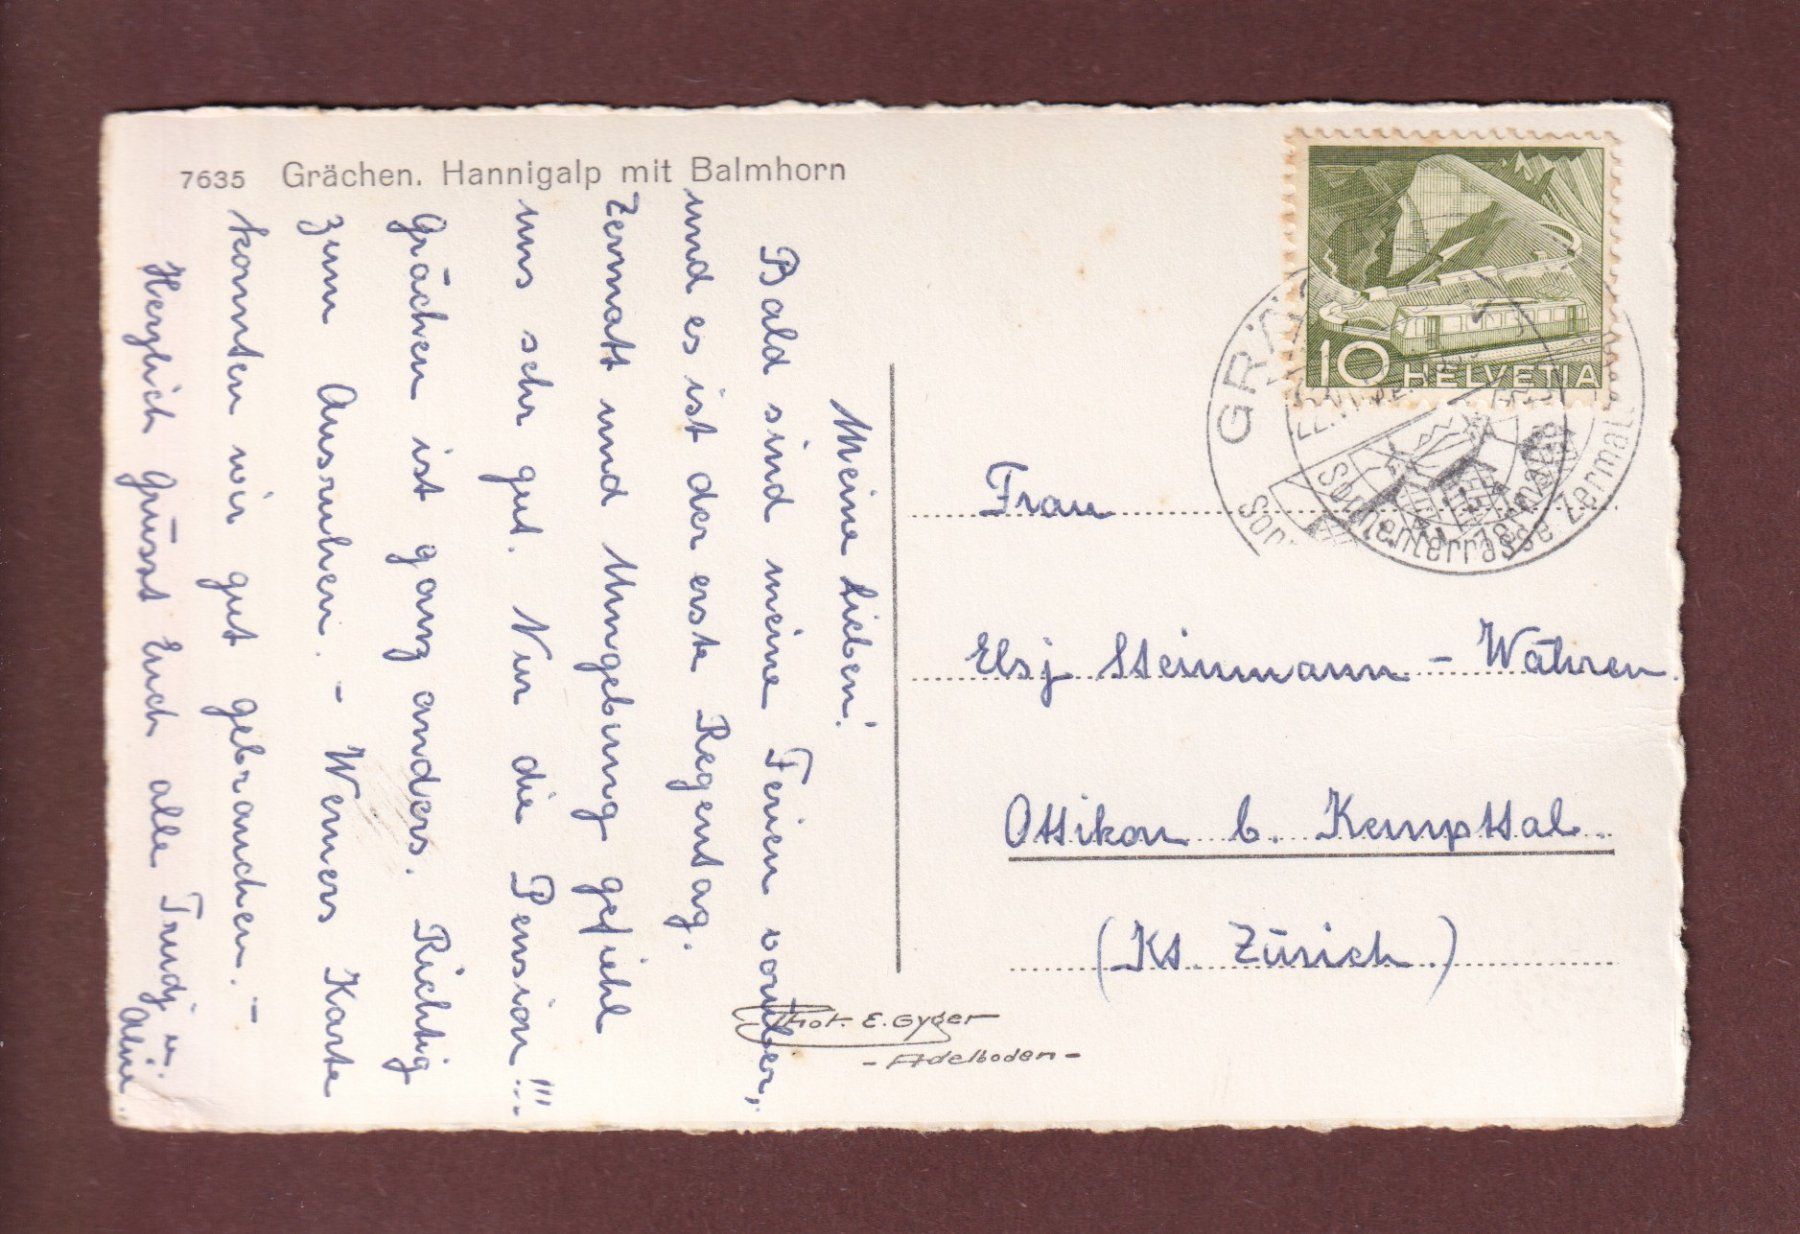 7635 Grächen. Hannigalp mit Balmhorn
Meine Lieben!
Bald sind meine Ferien vorüber,
und es ist der erste Regentag.
Zermatt und Umgebung gefiehl
uns sehr gut. Nur die Pension!!!
Grächen ist ganz anders. Richtig
zum Ausruhen. - Werners Karte
konnten wir gut gebrauchen. -
Herzlich grüsst Euch alle Trudj u.
Aline.
10 HELVETIA
Sonnenterrasse Zermatt
Frau
Elsj Steinmann - Währen
Ottikon b. Kemptthal.
(Kt. Zürich)
Phot. E. Gyger
- Adelboden -